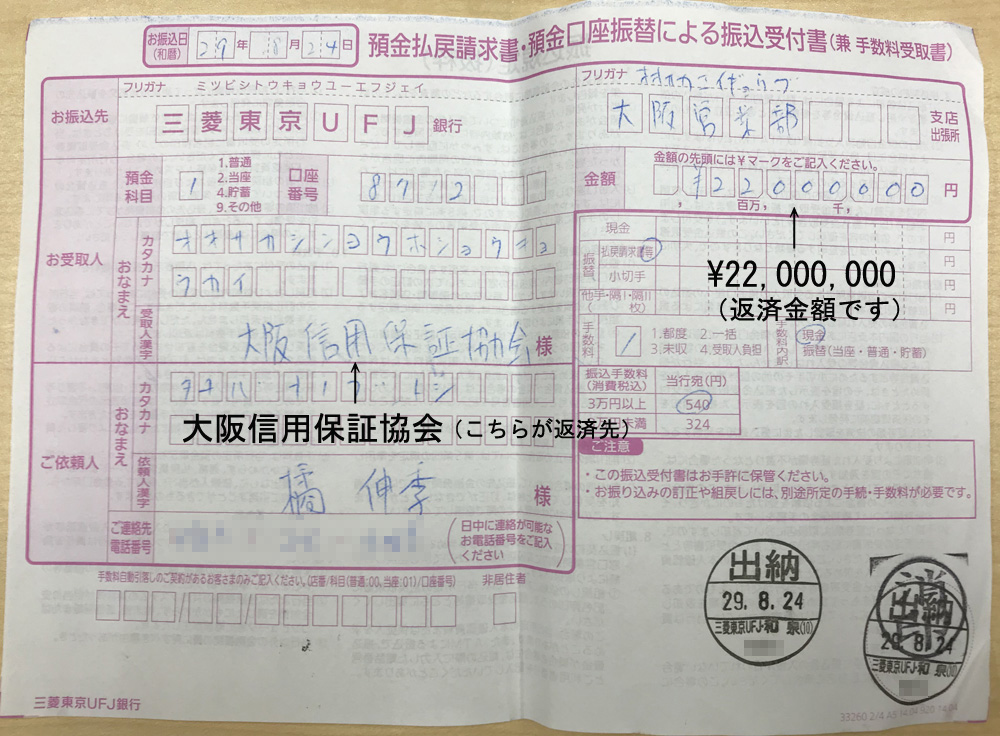 お振込日(和暦) 29年 8月24日
預金払戻請求書・預金口座振替による振込受付書(兼 手数料受取書)
お振込先
フリガナ ミツビシトウキョウユーエフジェイ
三菱東京UFJ 銀行
フリガナ
大阪営業部 支店 出張所
預金科目
1
1.普通
2.当座
4.貯蓄
9.その他
口座番号
8712
金額
金額の先頭には¥マークをご記入ください。
¥22000000 円
百万, 千,
お受取人
おなまえ
カタカナ
オオサカシンヨウホショウキョ
ウカイ
受取人漢字
大阪信用保証協会 様
ご依頼人
おなまえ
カタカナ
タチバナ
大阪信用保証協会(こちらが返済先)
依頼人漢字
橘 伸季 様
ご連絡先電話番号
(日中に連絡が可能な
お電話番号をご記入
ください)
振替
現金 円
払戻請求書 円
小切手 円
他手・隔Ⅰ・隔Ⅱ( 枚) 円
¥22,000,000
(返済金額です)
手数料
1
1.都度 2.一括
3.未収 4.受取人負担
手数料内訳
現金
振替(当座・普通・貯蓄)
振込手数料(消費税込) 当行宛(円)
3万円以上 540
未満 324
ご注意
・この振込受付書はお手許に保管ください。
・お振り込みの訂正や組戻しには、別途所定の手続・手数料が必要です。
手数料自動引落しのご契約があるお客さまのみご記入ください。(店番/科目(普通:00、当座:01)/口座番号)
非居住者
出納
29.8.24
三菱東京UFJ・和泉(10)
出納
29.8.24
三菱東京UFJ・和泉(10)
三菱東京UFJ銀行